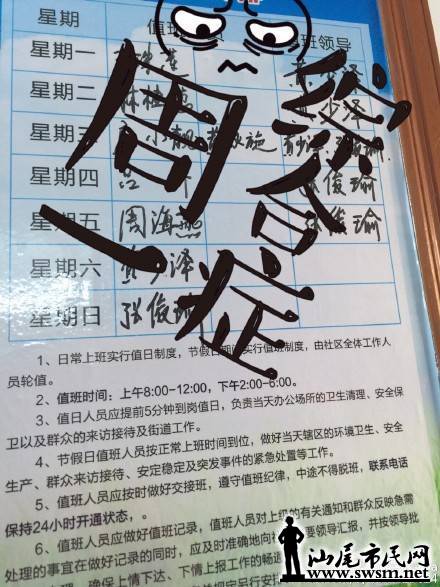 星期 值班 班领导
星期一
星期二 林
星期三
星期四 张俊瑜
星期五 周海燕 张俊瑜
星期六 黄少泽
星期日 张俊瑜
周一综合症
1、日常上班实行值日制度，节假日期间实行值班制度，由社区全体工作人
员轮值。
2、值班时间：上午8:00-12:00，下午2:00-6:00。
3、值日人员应提前5分钟到岗值日，负责当天办公场所的卫生清理、安全保
卫以及群众的来访接待及街道工作。
4、节假日值班人员按正常上班时间到位，做好当天辖区的环境卫生、安全
生产、群众来访接待、安定稳定及突发事件的紧急处置等工作。
5、值班人员应按时做好交接班，遵守值班纪律，中途不得脱班，联系电话
保持24小时开通状态，。
6、值班人员应做好值班记录，值班人员对上级的有关通知和群众反映急需
处理的事宜在做好记录的同时，应及时准确地向 要领导汇报，并按领导批
确保上情下达、下情上报工作的畅通
汕尾市民网
www.swsm.net